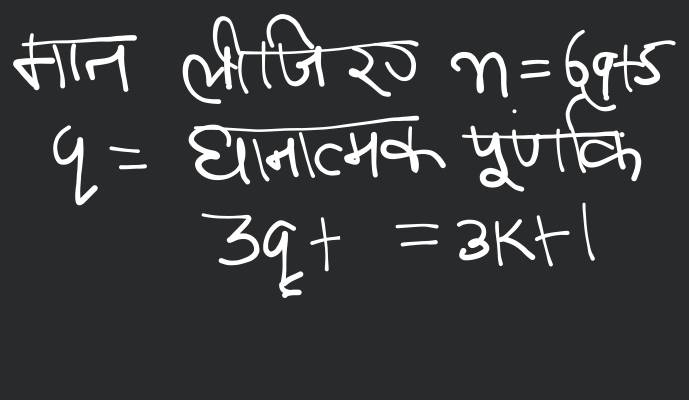 मान लीजिए n = 6q+5
q = धानात्मक पूर्णांक
3q + = 3K+1